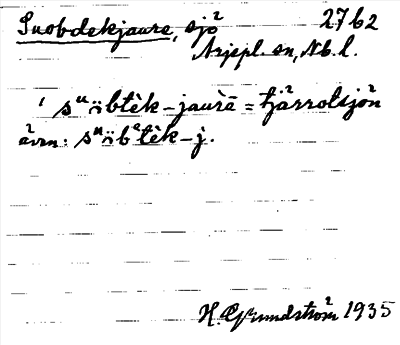 Suobdekjaure, sjö 2762
Arjepl. sn, Nb. l.
' sᵘöbtèk-jaurē = tjärrotsjön
även: sᵘöbᵉtèk-j.
H. Grundström 1935